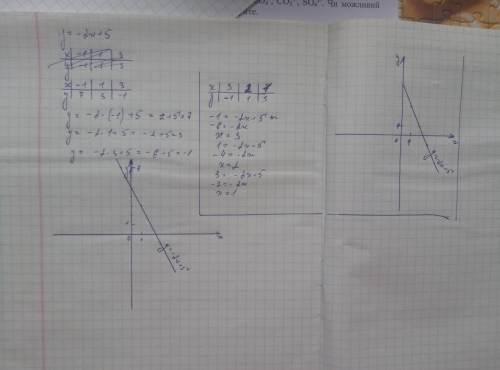 SO₃²⁻, CO₃²⁻, SO₄²⁻. Чи можливий
y = -2x+5
x | -1 | 1 | 3
y | -1 | -1 | 3
x | -1 | 1 | 3
y | 7 | 3 | -1
y = -2·(-1)+5 = 2+5=7
y = -2·1+5 = -2+5=3
y = -2·3+5 = -6+5=-1
x | 3 | 2 | 1
y | -1 | 1 | 3
-1 = -2x+5
-6 = -2x
x = 3
1 = -2x+5
-4 = -2x
x = 2
3 = -2x+5
-2 = -2x
x = 1
y
1
0 1 x
y=-2x+5
y
1
0 1 x
y=-2x+5